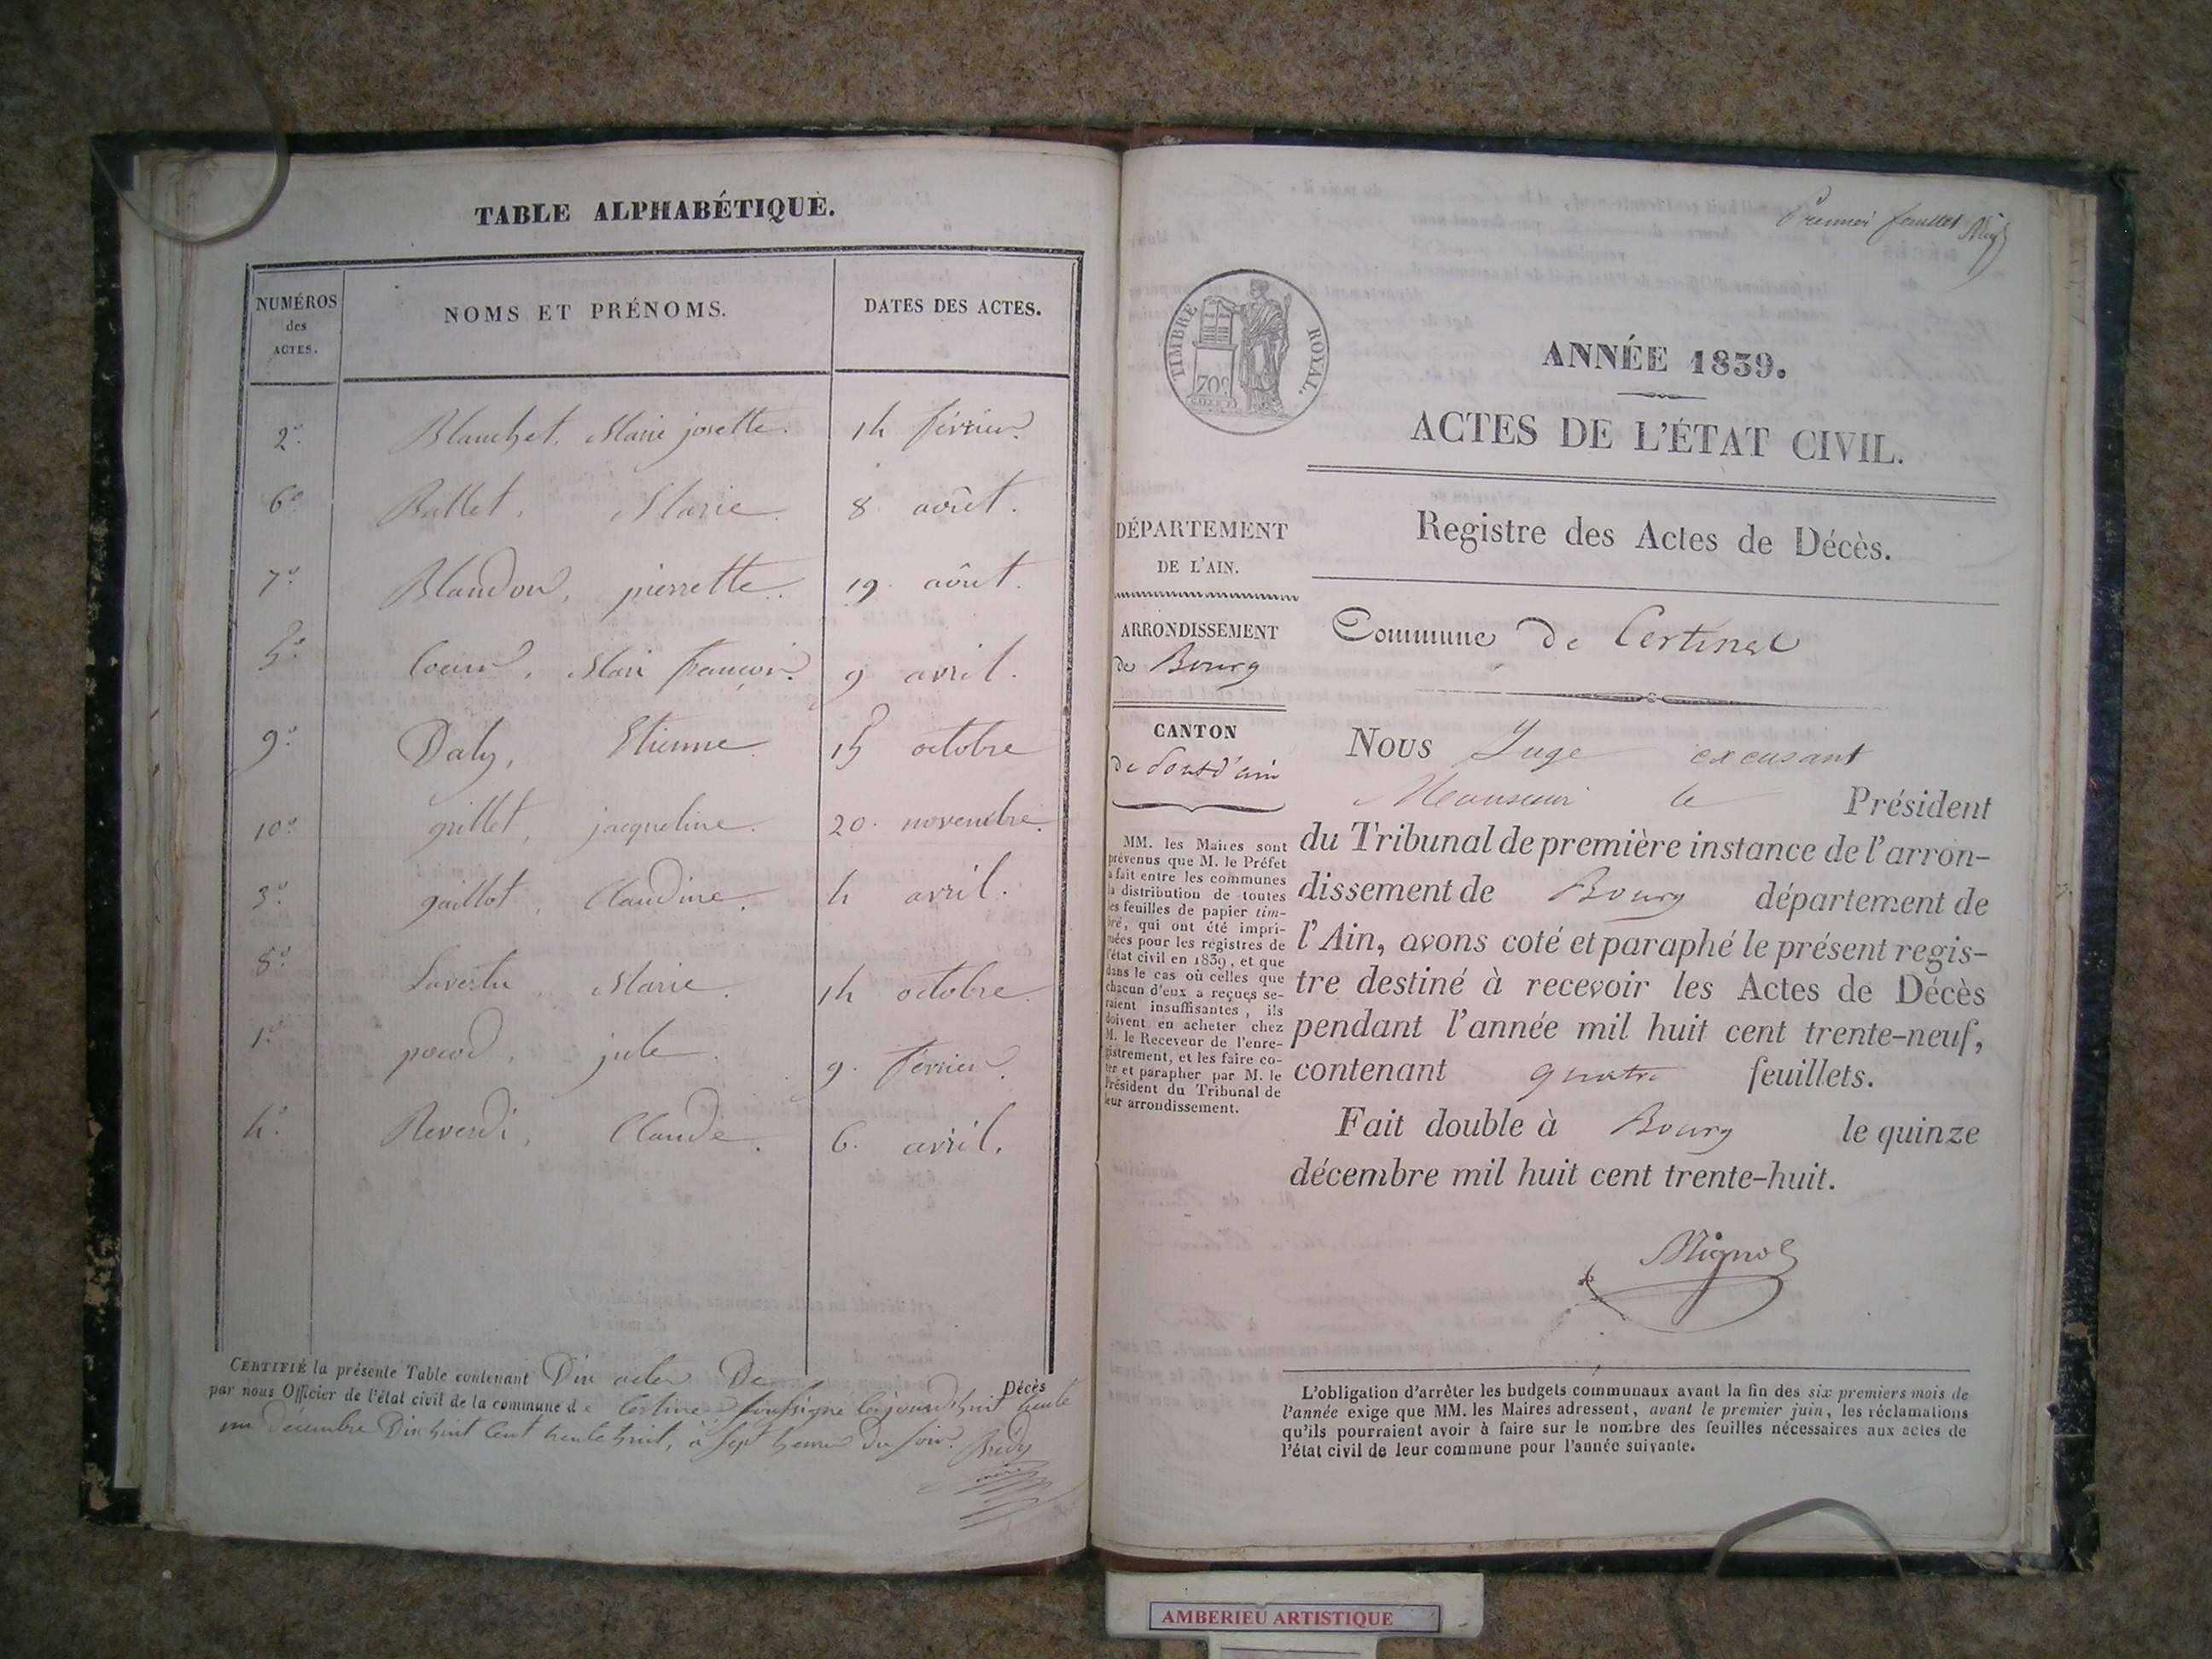 TABLE ALPHABÉTIQUE.
NUMÉROS
des
ACTES.
NOMS ET PRÉNOMS.
DATES DES ACTES.
2º. Blanchet, Marie josette. 14 février.
6º Ballet, Marie. 8 août.
7º. Blandon, pierrette. 19. août.
5º. Coeur, Mari françois. 9 avril.
9º. Daty, Etienne 15 octobre
10º. grillet, jacqueline. 20. novembre.
3º. gaillot, Claudine. 4 avril.
8º. Marie. 14 octobre
1º. jule. 9. février.
4º. Reverdi, Claude. 6. avril.
CERTIFIÉ la présente Table contenant Dix actes De Décès
par nous Officier de l'état civil de la commune de soussigné cejourd'huit trente
un décembre Dix huit Cent trente huit, à sept heures Du soir.
Premier feuillet
TIMBRE ROYAL.
70c
ANNÉE 1839.
ACTES DE L'ÉTAT CIVIL.
Registre des Actes de Décès.
DÉPARTEMENT
DE L'AIN.
ARRONDISSEMENT
de Bourg
CANTON
de Pont d'ain
MM. les Maires sont
prévenus que M. le Préfet
a fait entre les communes
la distribution de toutes
les feuilles de papier tim-
bré, qui ont été impri-
mées pour les registres de
l'état civil en 1839, et que
dans le cas où celles que
chacun d'eux a reçues se-
raient insuffisantes, ils
doivent en acheter chez
M. le Receveur de l'enre-
gistrement, et les faire co-
ter et parapher par M. le
Président du Tribunal de
leur arrondissement.
Commune de Certines
Nous Juge excusant
Monsieur le Président
du Tribunal de première instance de l'arron-
dissement de Bourg département de
l'Ain, avons coté et paraphé le présent regis-
tre destiné à recevoir les Actes de Décès
pendant l'année mil huit cent trente-neuf,
contenant quatre feuillets.
Fait double à Bourg le quinze
décembre mil huit cent trente-huit.
L'obligation d'arrêter les budgets communaux avant la fin des six premiers mois de
l'année exige que MM. les Maires adressent, avant le premier juin, les réclamations
qu'ils pourraient avoir à faire sur le nombre des feuilles nécessaires aux actes de
l'état civil de leur commune pour l'année suivante.
AMBERIEU ARTISTIQUE